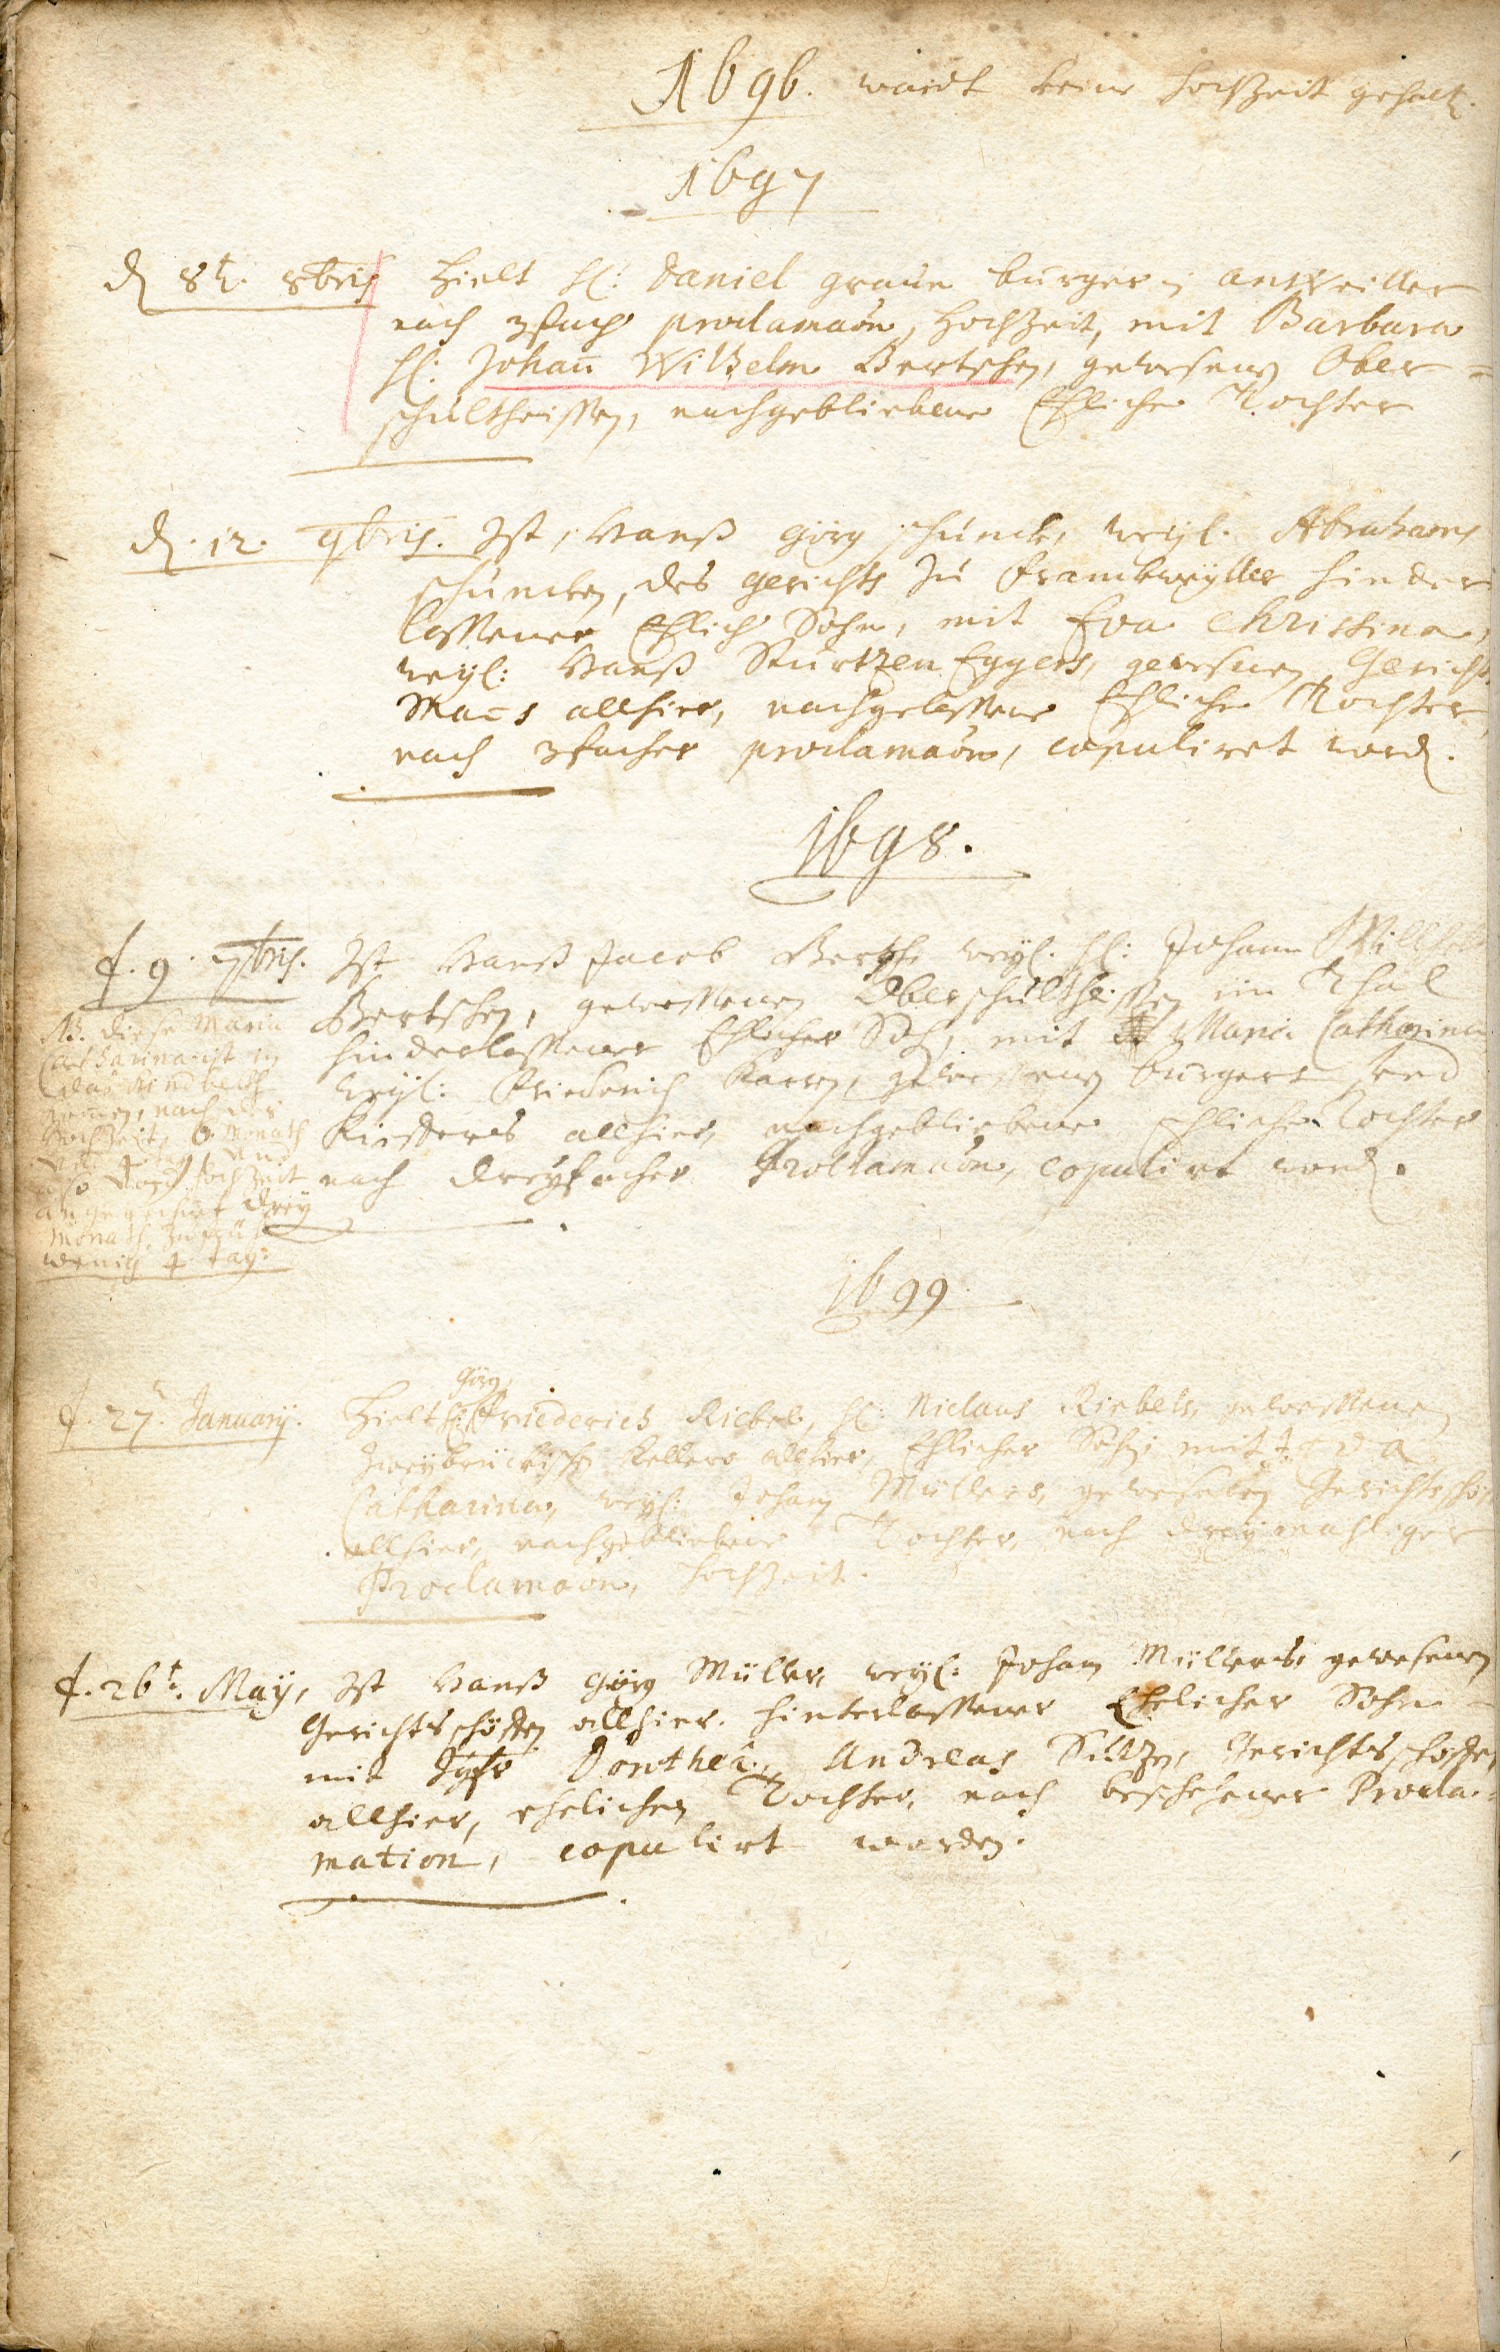 1696. wardt keine Hochzeit gehalt.
1697
d. 8t. 8bris hielt H: Daniel graue burger in anweiller
nach 3fach proclamaon, Hochzeit, mit Barbara
H: Johañ Wilhelm Bertschen, gewesenen Ober=
schultheissen, nachgebliebene Ehliche Tochter
d. 12. 9bris. Ist, Hanß Görg schunck, weyl. Abrahams
schuncken, des gerichts zu franckweyller hinder
lassener Ehlich Sohn, mit Eva Christina,
weyl: Hanß Stürtzen Eggers, gewesnen Gerichts
Mans allhier, nachgelassene Ehliche Tochter,
nach 3facher proclamaon, copuliret word.
1698.
d. 9. 7bris. Ist Hanß Jacob Bertsche weyl. H: Johann Willhelm
Bertschen, gewessenen Oberschultheissen im Thal
hinderlassener Ehlicher Sohn, mit Maria Catharina
weyl: Friederich gewessenen burgers
allhier, nachgebliebene Ehliche Tochter
nach dreyfacher Proclamaon, copulirt word.
NB. diese Maria
Catharina ist in
das Kindbeth
kommen, nach der
Hochzeit, 6 Monath
Hochzeit
drey
Monath zu früh
wenig 4 tag:
1699
d. 27. January. Hielt H: Görg Friederich Riebel, H: Niclaus Riebels, gewessenen
Zweybrückischen Kellers allhier, Ehlicher Sohn, mit
Catharina, weyl: Johan Müllers, gewesenen Gerichtsschöff
allhier, nachgebliebene Tochter, nach dreymahliger
Proclamaon, Hochzeit.
d. 26t. May, Ist Hanß Görg Müller, weyl: Johan Müllers, gewesenen
Gerichtsschöffen allhier. hinterlassener Ehelicher Sohn
mit Jgfr Dorothea, Andreas Gerichtsschöffen
allhier, ehelichen Tochter, nach beschehener Procla=
mation, copulirt worden.